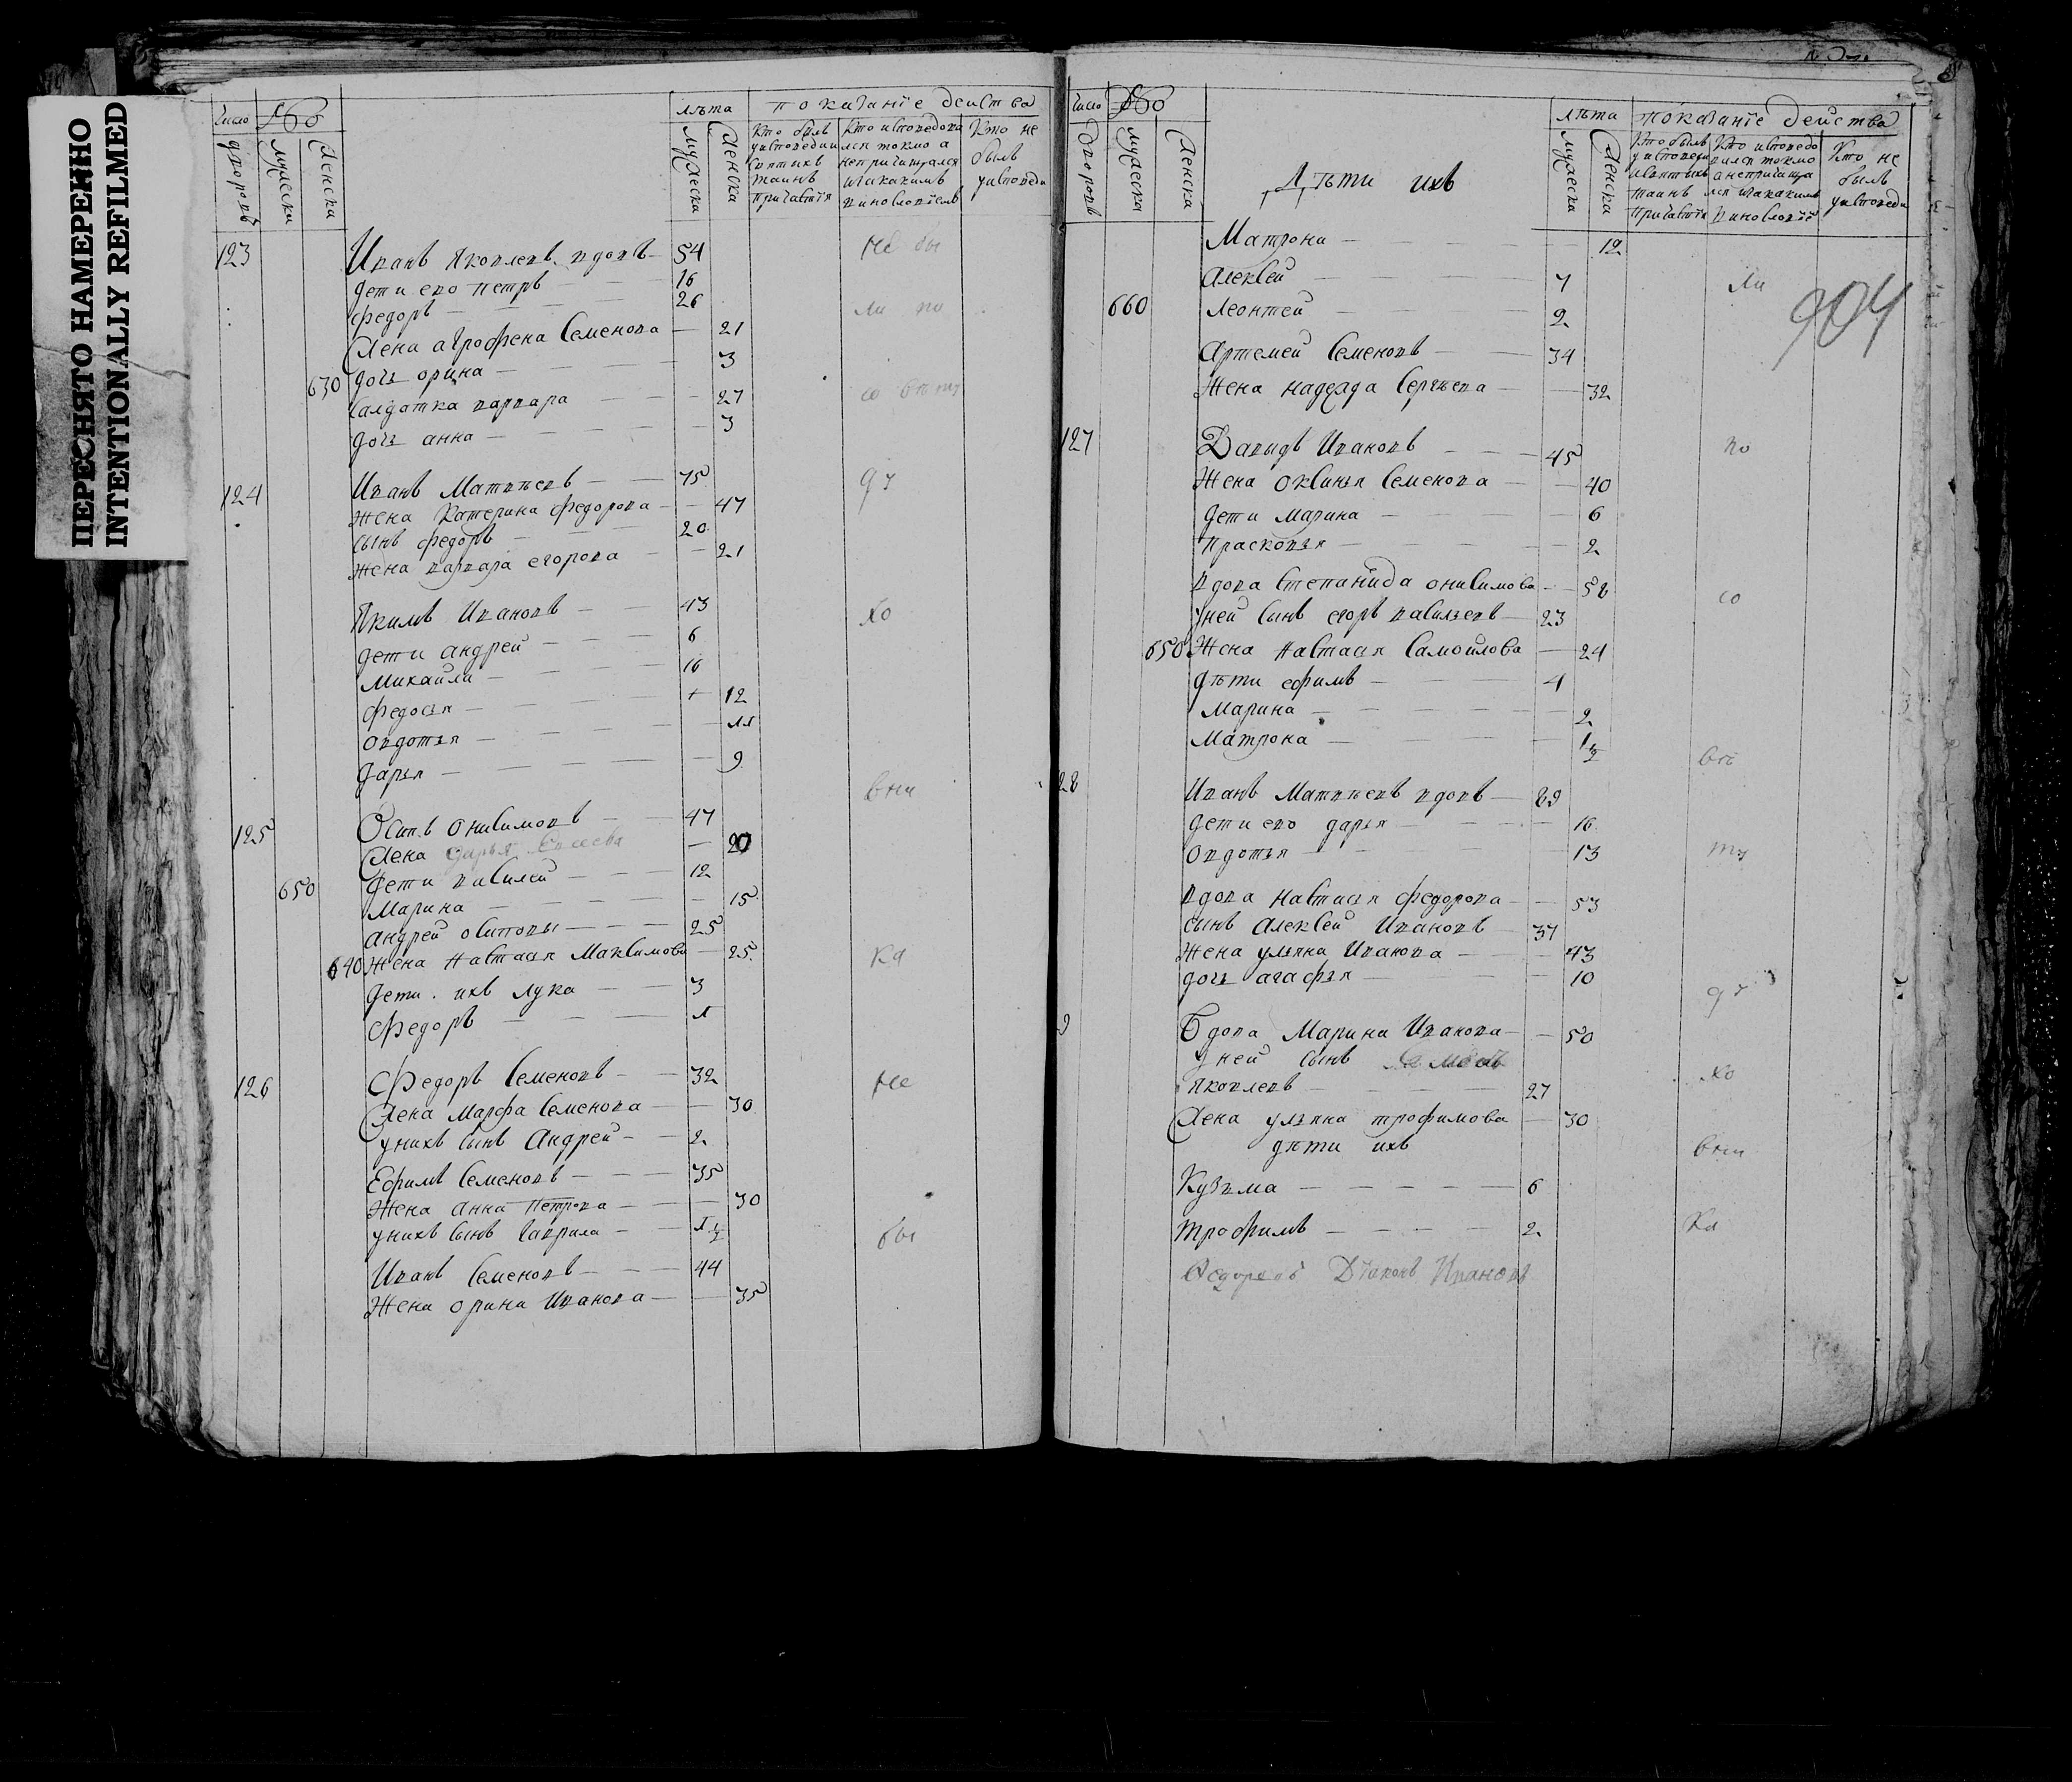 ПЕРЕСНЯТО НАМЕРЕННО
INTENTIONALLY REFILMED
число
дворовъ
мужески
женски
лѣта
показание деиства
мужеска
женска
кто былъ
у исповеди и
святыхъ
таинъ
причастия
кто исповедова
лся токмо а
непричащался
и за какимъ
винословиемъ
кто не
былъ
у исповеди
123 Иванъ Яковлевъ вдовъ — 54
дети его петръ — 16
федоръ — 26
Жена агрофена Семенова — 21
630 дочь орина — 3
Салдатка варвара — 27
дочь анна — 3
124 Иванъ Матвѣевъ — 75
жена Катерина федорова — 47
сынъ федоръ — 20
жена варвара егорова — 21
Якимъ Ивановъ — 43
дети андрей — 6
Михайла — 16
федосья — 12
овдотья — 11
дарья — 9
125 Осипъ Онисимовъ — 47
Жена дарья — 20
650 дети василей — 12
Марина — 15
андрей осиповы — 25
640 Жена настасья Максимова — 25
дети ихъ лука — 3
Федоръ — 1
126 Федоръ Семеновъ — 32
Жена Марфа Семенова — 30
у нихъ сынъ Андрей — 2
Ефимъ Семеновъ — 35
Жена анна Петрова — 30
у нихъ сынъ гаврила — 1/2
Иванъ Семеновъ — 44
Жена орина Иванова — 35
не бы
ли по
со
ду
хо
вни
ка
не
бы
число
дворовъ
мужеска
женска
Дѣти ихъ
лѣта
показание действа
мужеска
женска
кто былъ
у исповеди
и святыхъ
таинъ
причастия
кто исповедо
вался токмо
а непричаща
лся и за какимъ
винословие
кто не
былъ
у исповеди
904
Матрона — 12
алексей — 7
660 леонтей — 2
артемей Семеновъ — 34
Жена надежда Сергѣева — 32
127 Давыдъ Ивановъ — 45
Жена оксинья Семенова — 40
дети марина — 6
прасковья — 2
вдова степанида онисимова — 58
у ней сынъ егоръ васильевъ — 23
650 Жена настасья Самойлова — 24
дѣти ефимъ — 4
Марина — 2
Матрона — 1/2
28 Иванъ Матвѣевъ вдовъ — 89
дети его дарья — 16
овдотья — 13
вдова настасья федорова — 53
сынъ алексей Ивановъ — 37
Жена ульяна Иванова — 43
дочь агафья — 10
9 Вдова Марина Иванова — 50
у ней сынъ
Яковлевъ — 27
Жена ульяна трофимова — 30
дѣти ихъ
Кузьма — 6
трофимъ — 2
Диаконъ Ивановъ
ли
по
со
ду
хо
вни
ка